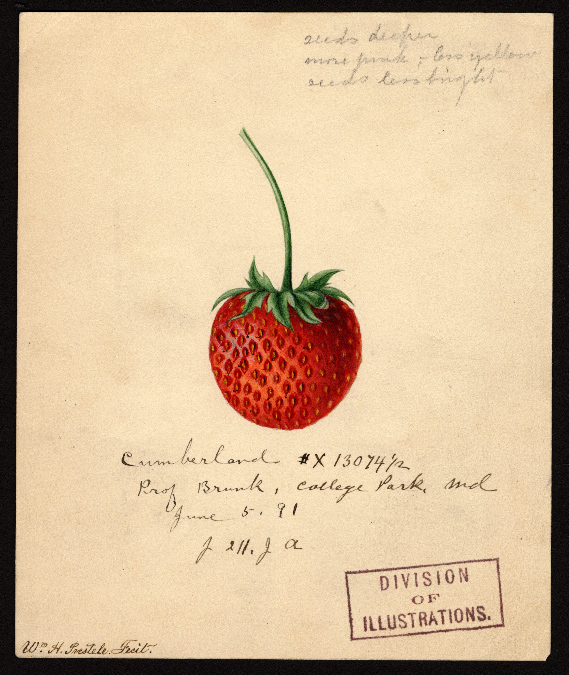 seeds deeper
more pink, less yellow
seeds less bright
Cumberland #X 13074½
Prof Brunk, College Park, Md
June 5. 91
DIVISION
OF
ILLUSTRATIONS.
Wm. H. Prestele. Fecit.